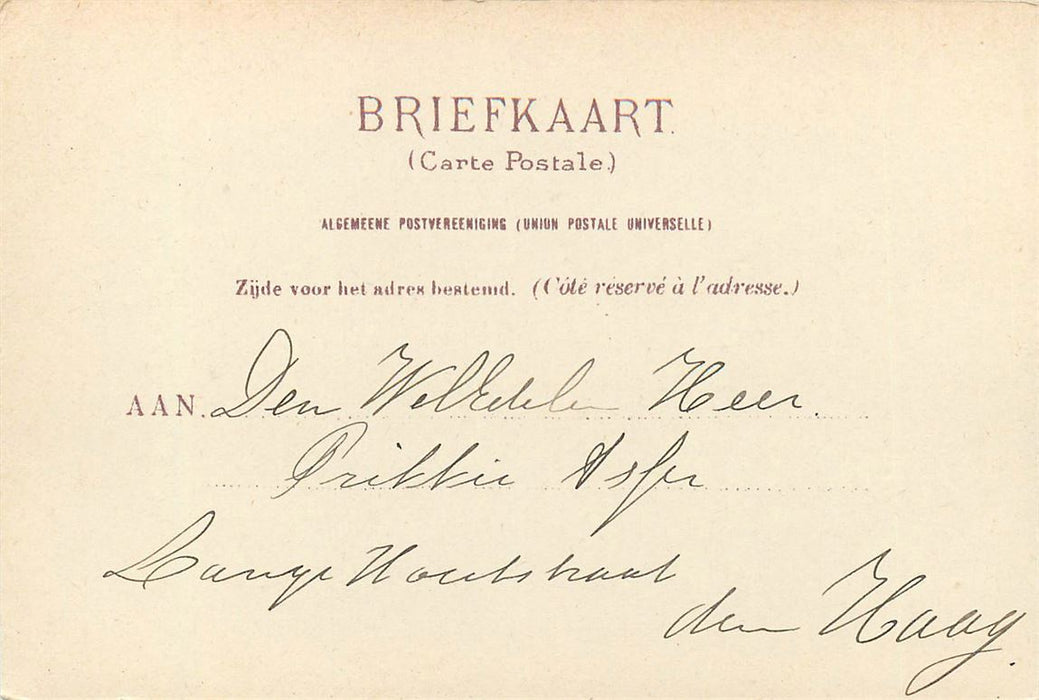 BRIEFKAART.
(Carte Postale.)
ALGEMEENE POSTVEREENIGING (UNION POSTALE UNIVERSELLE)
Zijde voor het adres bestemd. (Côté réservé à l'adresse.)
AAN. Den WelEdelen Heer.
Prikkie
Lange Houtstraat
den Haag.